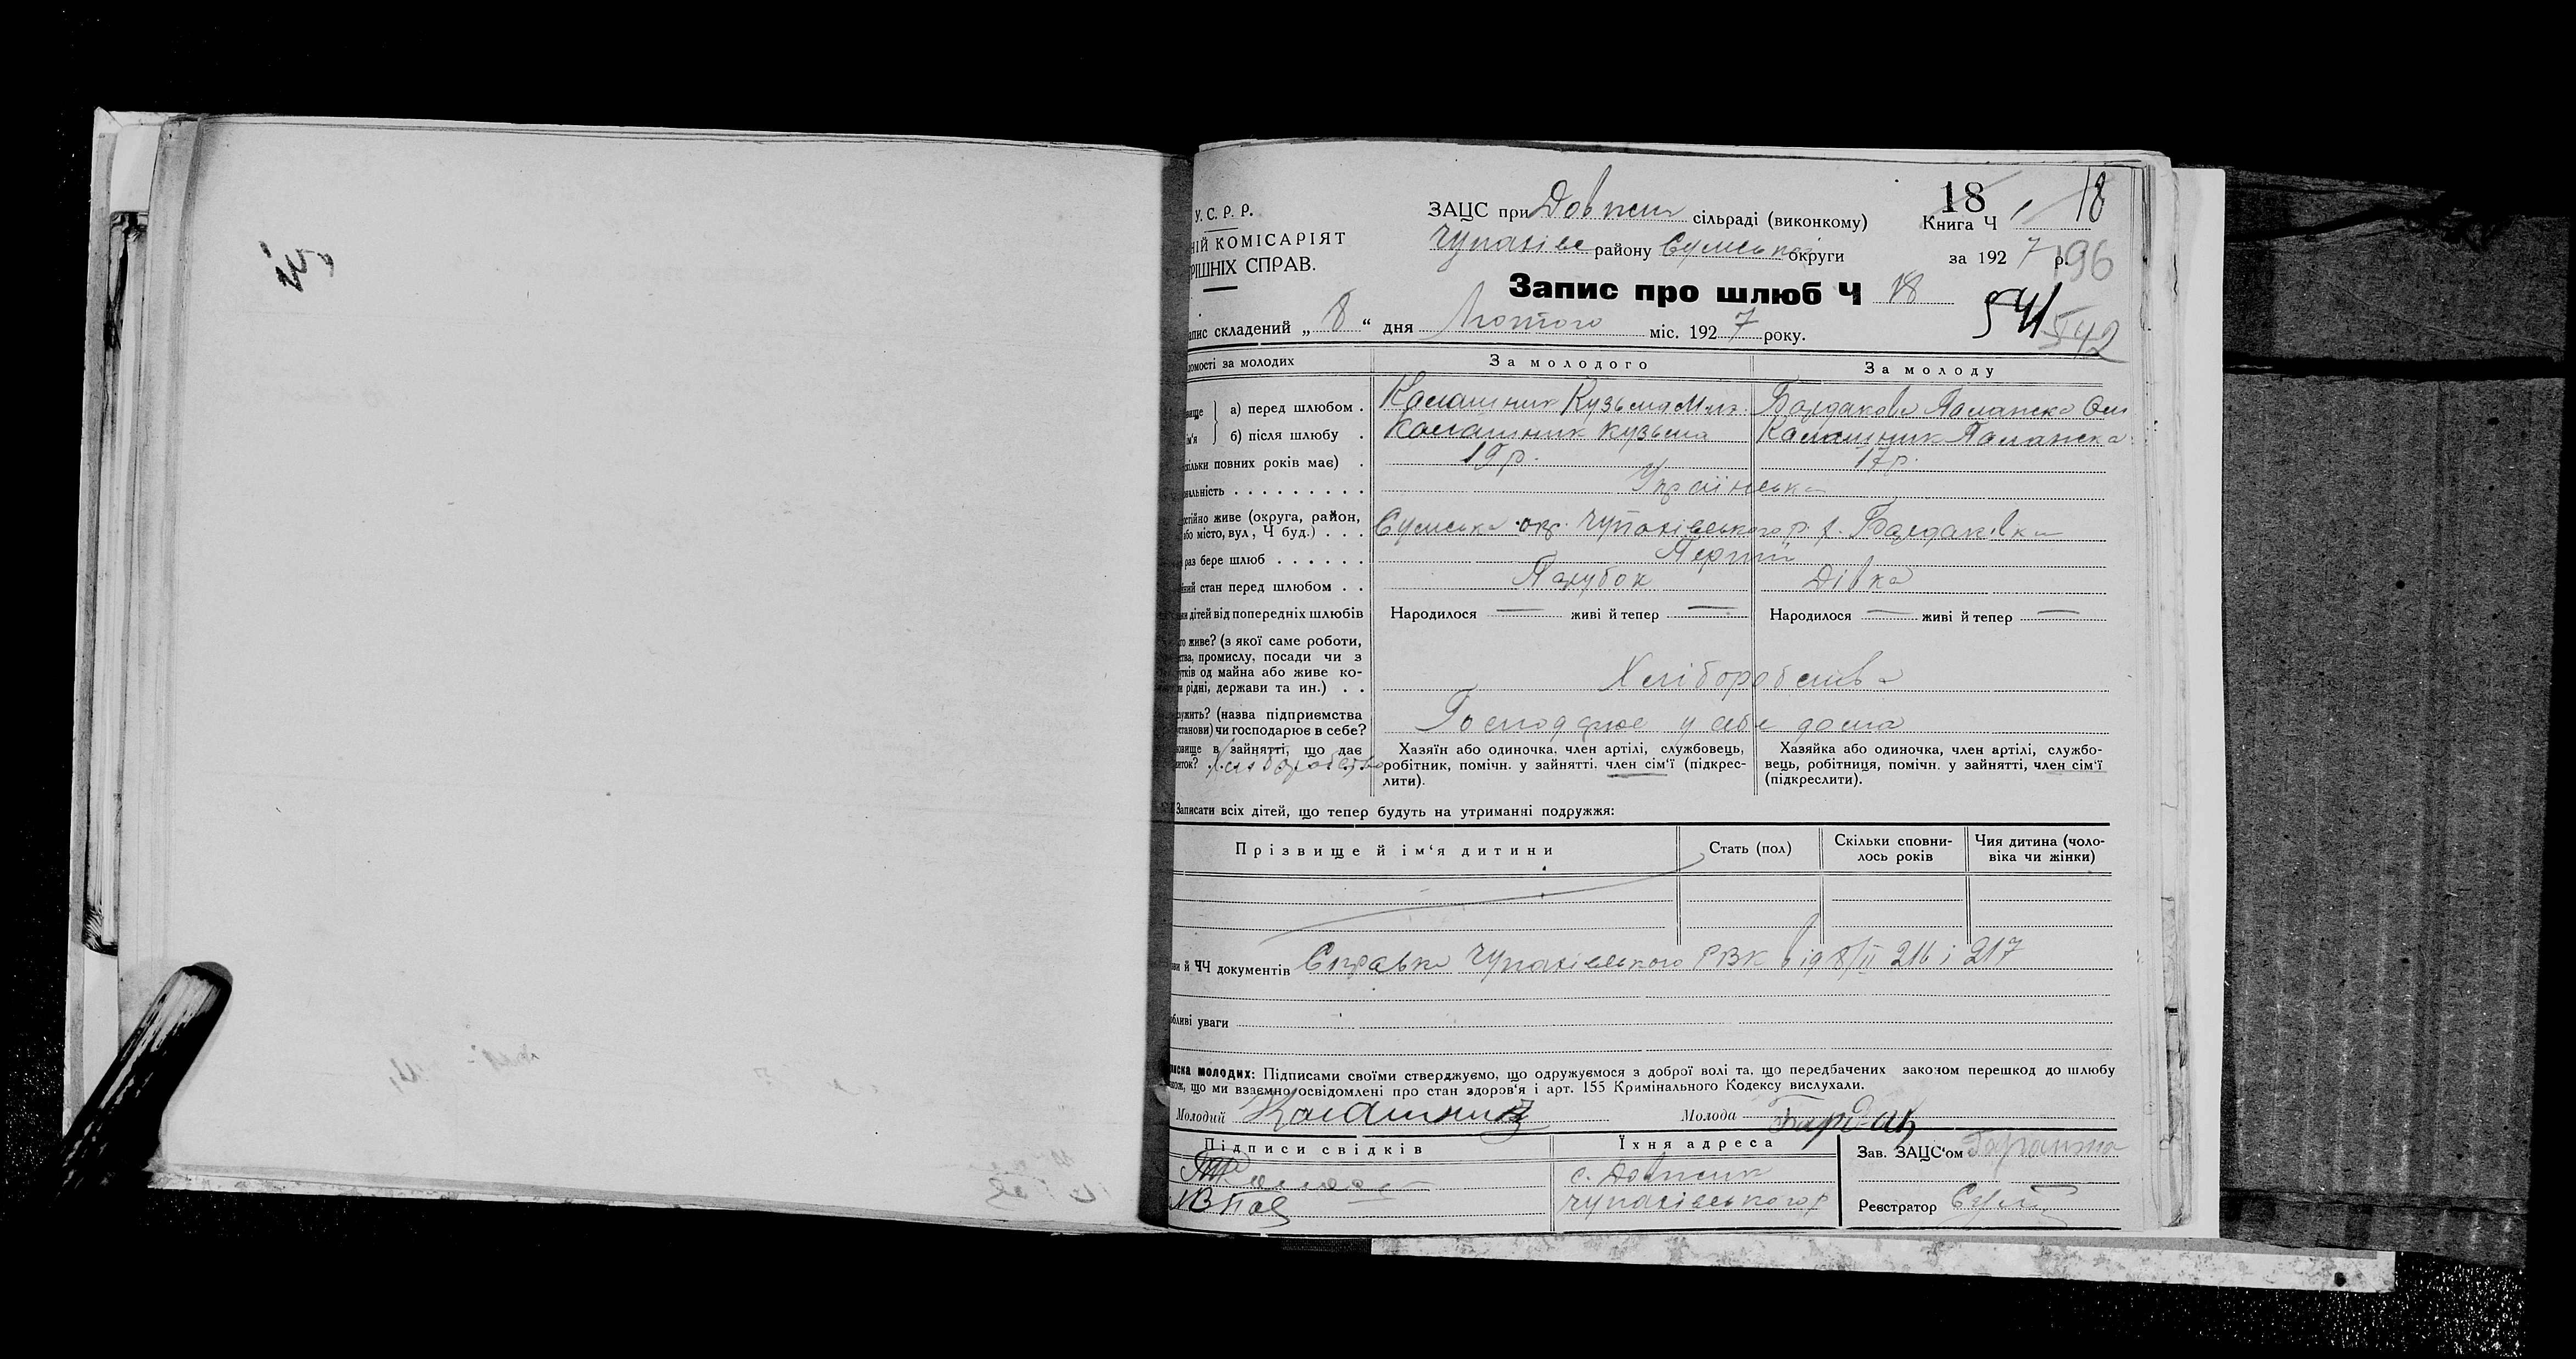 У. С. Р. Р.
ЗАЦС при Довжик сільраді (виконкому)
18 18
Книга Ч 1
НІЙ КОМІСАРІЯТ
Чупахівс району Сумської округи
за 1927 р.
196
РІШНІХ СПРАВ.
Запис про шлюб Ч 18
541 542
апис складений „ 8 “ дня Лютого міс. 1927 року.
омості за молодих
За молодого
За молоду
вище а) перед шлюбом .
Калашник Кузьма
Бардакова Паланка
ім'я б) після шлюбу .
Калашник Кузьма
Калашник Паланка
кільки повних років має) .
19 р.
17 р.
нальність . . . . . . . . .
Українська
остійно живе (округа, район,
або місто, вул, Ч буд.) . . .
Сумська окр. Чупахівського р. х. Бардаківка
раз бере шлюб . . . . . .
Перший
ний стан перед шлюбом . .
Парубок
Дівка
ки дітей від попередніх шлюбів
Народилося — живі й тепер —
Народилося — живі й тепер —
го живе? (з якої саме роботи,
ства, промислу, посади чи з
утків од майна або живе ко-
рідні, держави та ин.) . .
Хліборобства
лужить? (назва підприємства
станови) чи господарює в себе?
Господарює у себе дома
овище в зайнятті, що дає
иток? . Хліборобство
Хазяїн або одиночка, член артілі, службовець,
робітник, помічн. у зайнятті, член сім'ї (підкрес-
лити).
Хазяйка або одиночка, член артілі, службо-
вець, робітниця, помічн. у зайнятті, член сім'ї
(підкреслити).
Записати всіх дітей, що тепер будуть на утриманні подружжя:
Прізвище й ім'я дитини
Стать (пол)
Скільки сповни-
лось років
Чия дитина (чоло-
віка чи жінки)
ви й ЧЧ документів Справка Чупахівського РВК від 8/II 216 і 217
бливі уваги
писка молодих: Підписами своїми стверджуємо, що одружуємося з доброї волі та, що передбачених законом перешкод до шлюбу
що ми взаємно освідомлені про стан здоров'я і арт. 155 Кримінального Кодексу вислухали.
Молодий Калашник
Молода Бардак
Підписи свідків
Їхня адреса
Зав. ЗАЦС'ом
с. Довжик
Чупахівського р
Реєстратор